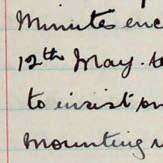 Minutes enc
12th May. to
to insist on
mounting